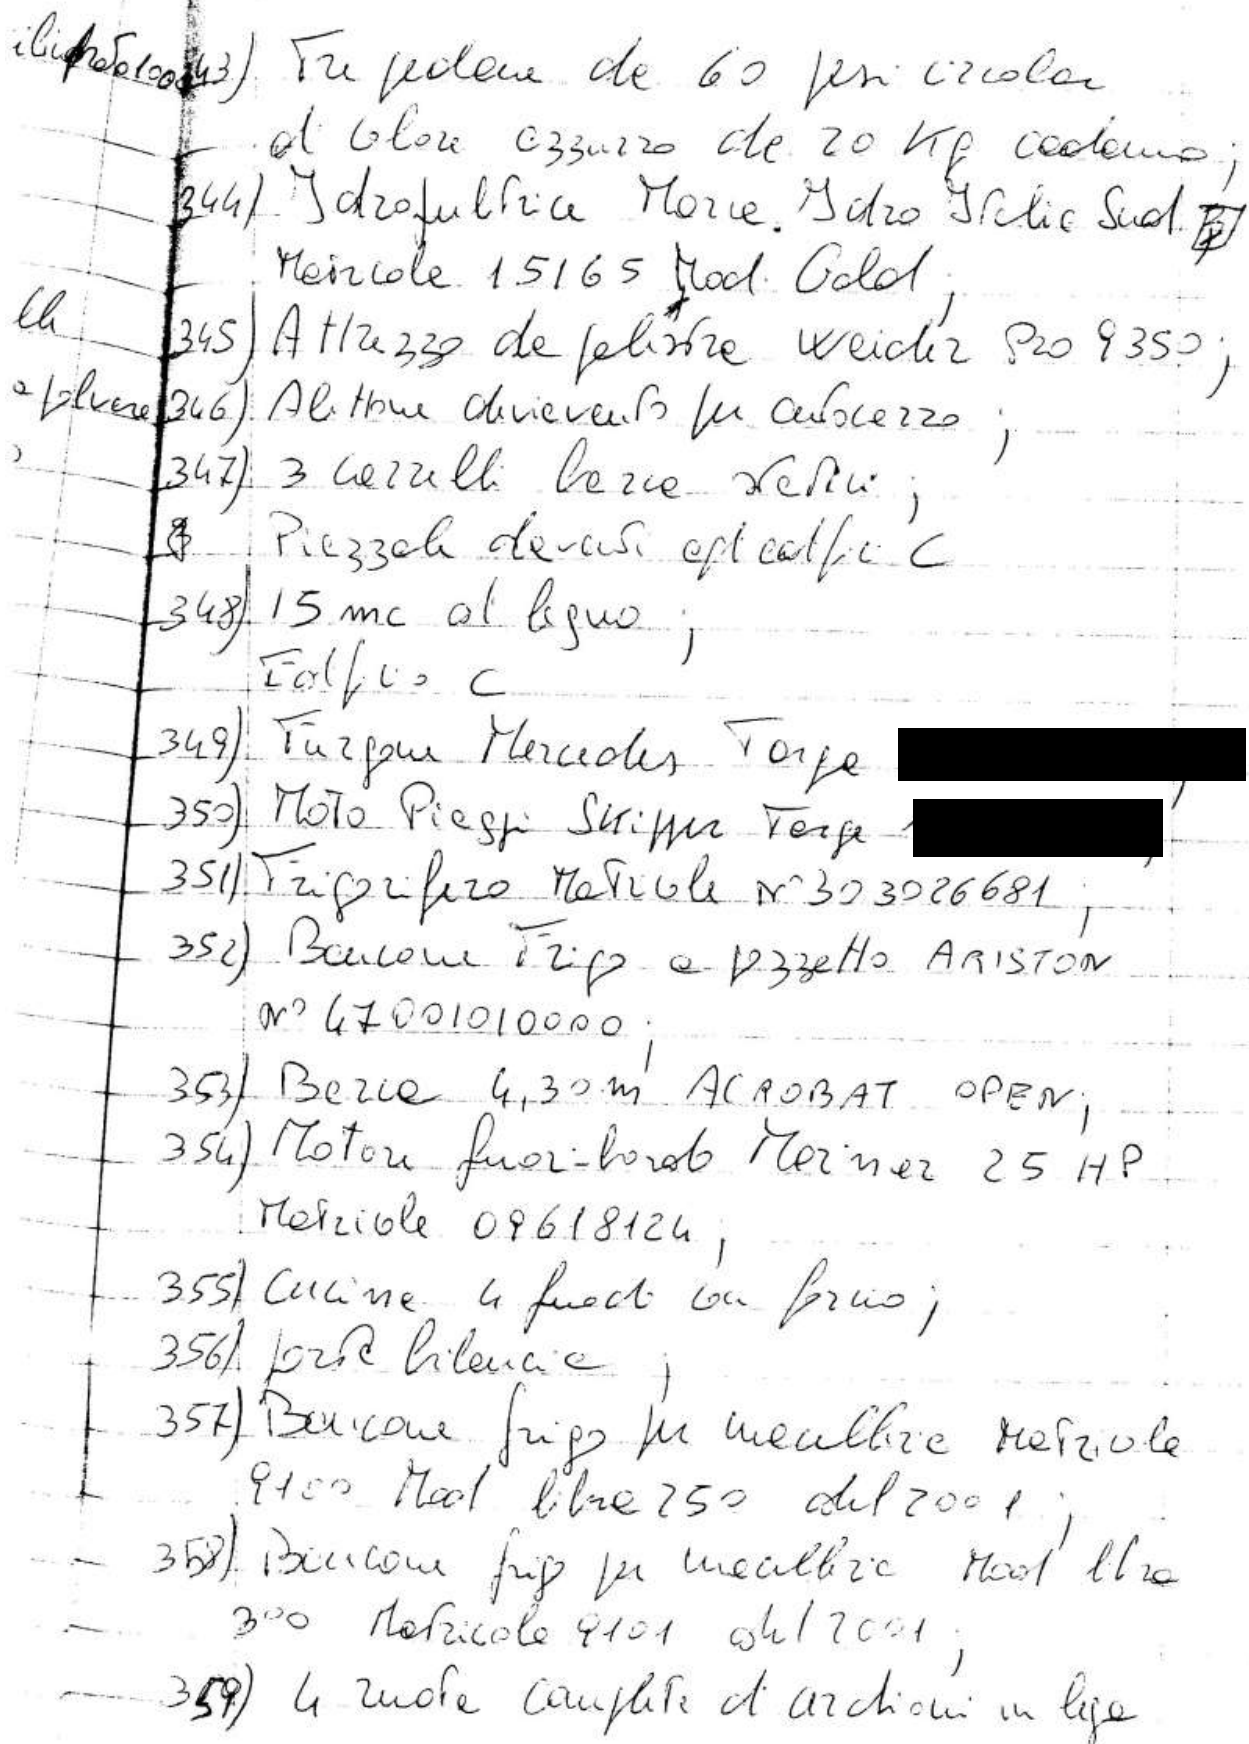 343) Tre pedane da 60 pesi circolari
di colore azzurro da 20 Kg cadauno;
344) Idropulitrice Marca Idro Italia Sud
Matricola 15165 Mod. Gold;
345) Attrezzo da palestra Weider Pro 9350;
346) Alettone deviavento per autocarro;
347) 3 carrelli barca
Piazzale davanti opificio C
348) 15 mc di legno;
C
349) Furgone Mercedes Targa
350) Moto Piaggio Skipper Targa
351) Frigorifero Matricola N° 303026681;
352) Bancone Frigo a pozzetto ARISTON
N° 47001010000;
353) Barca 4,30 m ACROBAT OPEN;
354) Motore fuori-bordo Mariner 25 HP
Matricola 09618124;
355) Cucina 4 fuochi con forno;
356) porta bilancia;
357) Bancone frigo per macelleria Matricola
9100 Mod libra 250 del 2001;
358) Bancone frigo per macelleria Mod libra
300 Matricola 9101 del 2001;
359) 4 ruote complete di cerchioni in lega
a polvere